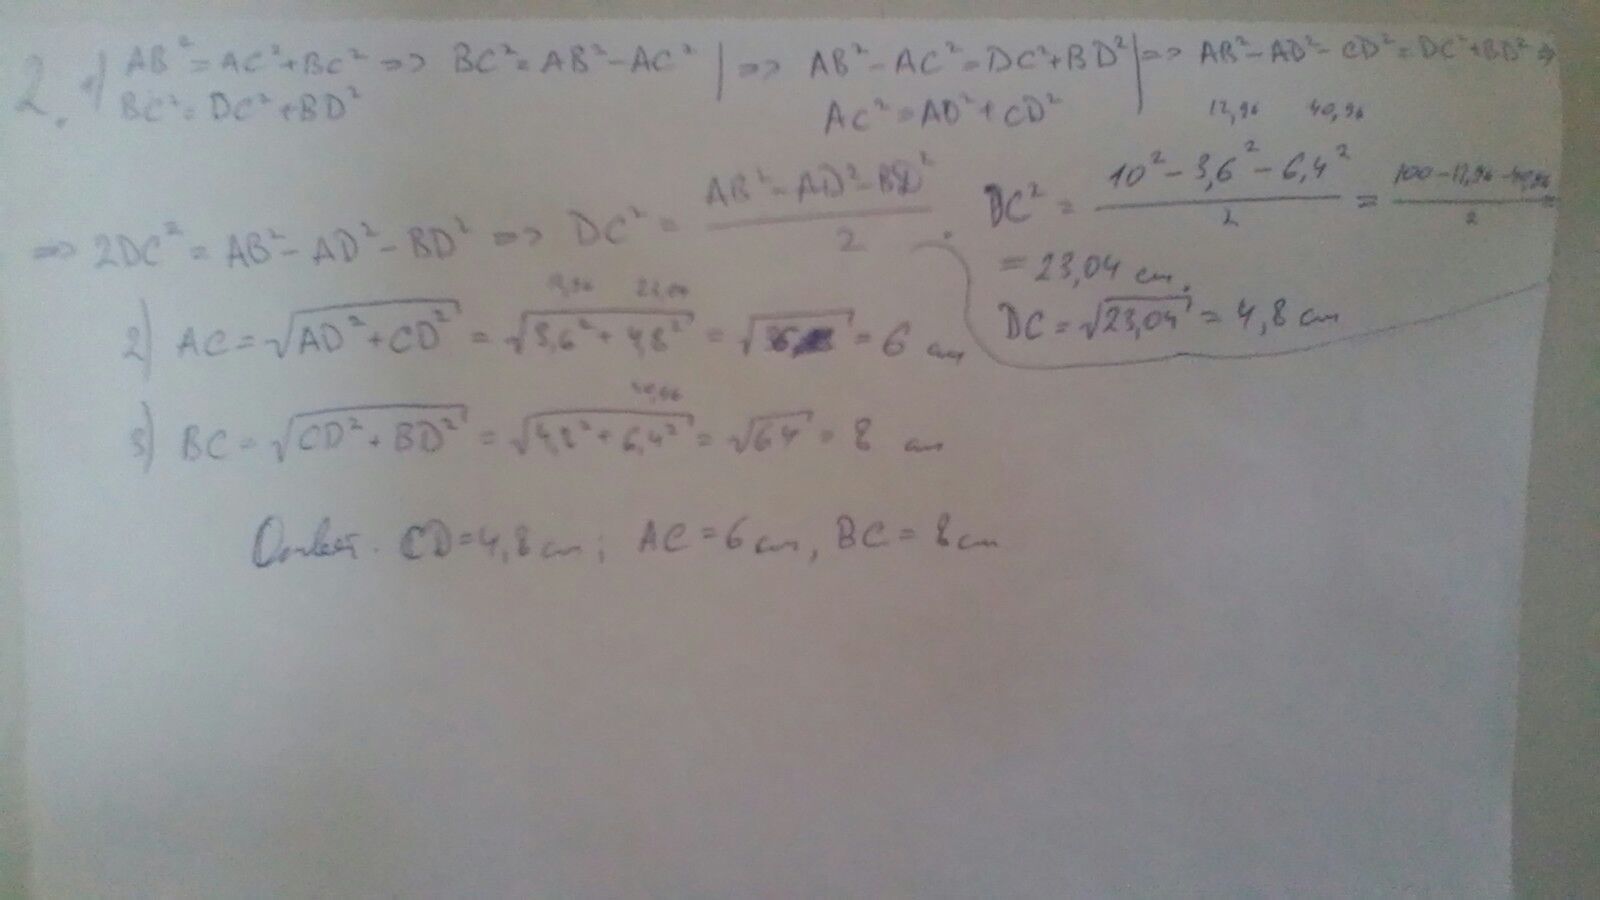 2. 1) AB² = AC² + BC² => BC² = AB² - AC² | => AB² - AC² = DC² + BD² | => AB² - AD² - CD² = DC² + BD² =>
BC² = DC² + BD² AC² = AD² + CD²
12,96 40,96
=> 2DC² = AB² - AD² - BD² => DC² = (AB² - AD² - BD²)/2 . DC² = (10² - 3,6² - 6,4²)/2 = (100 - 12,96 - 40,96)/2 =
= 23,04 см.
DC = √23,04 = 4,8 см
12,96 23,04
2) AC = √(AD² + CD²) = √(3,6² + 4,8²) = √36 = 6 см
40,96
3) BC = √(CD² + BD²) = √(4,8² + 6,4²) = √64 = 8 см
Ответ. CD = 4,8 см; AC = 6 см, BC = 8 см